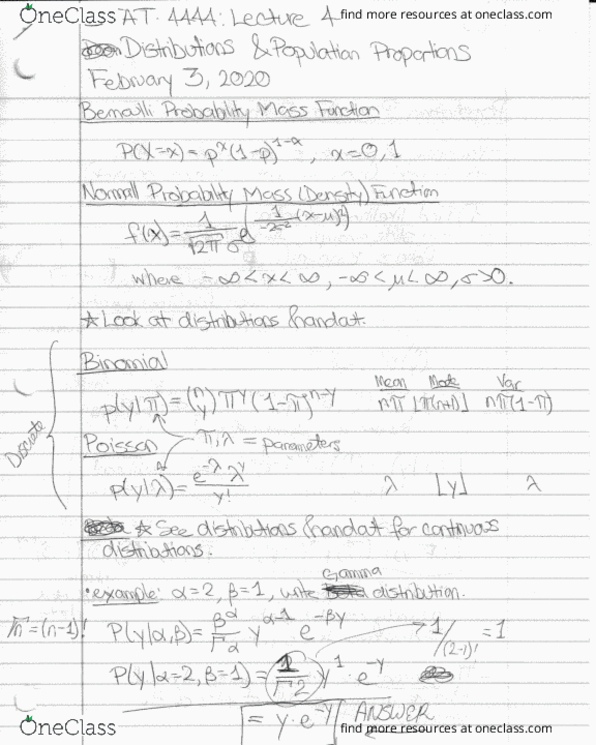 OneClass STAT. 4444: Lecture 4 find more resources at oneclass.com
Distributions & Population Proportions
February 3, 2020
Bernoulli Probability Mass Function
P(X=x) = p^x (1-p)^{1-x}, x=0,1
Normal Probability Mass (Density) Function
f(x) = 1/(√2π σ) e^(1/-2σ² (x-μ)²)
where -∞<x<∞, -∞<μ<∞, σ>0.
☆ Look at distributions handout.
Binomial
Mean Mode Var
p(y|π) = (n y) π^y (1-π)^{n-y} nπ ⌊π(n+1)⌋ nπ(1-π)
Discrete
Poisson π, λ = parameters
p(y|λ) = e^{-λ} λ^y / y! λ ⌊y⌋ λ
☆ See distributions handout for continuous
distributions.
Gamma
• example: α=2, β=1, write distribution.
Γn = (n-1)! P(y|α,β) = β^α/Γα y^{α-1} e^{-βy} → 1/(2-1)! = 1
P(y|α=2, β=1) = 1/Γ2 y^1 · e^{-y}
= y·e^{-y} ANSWER
OneClass find more resources at oneclass.com